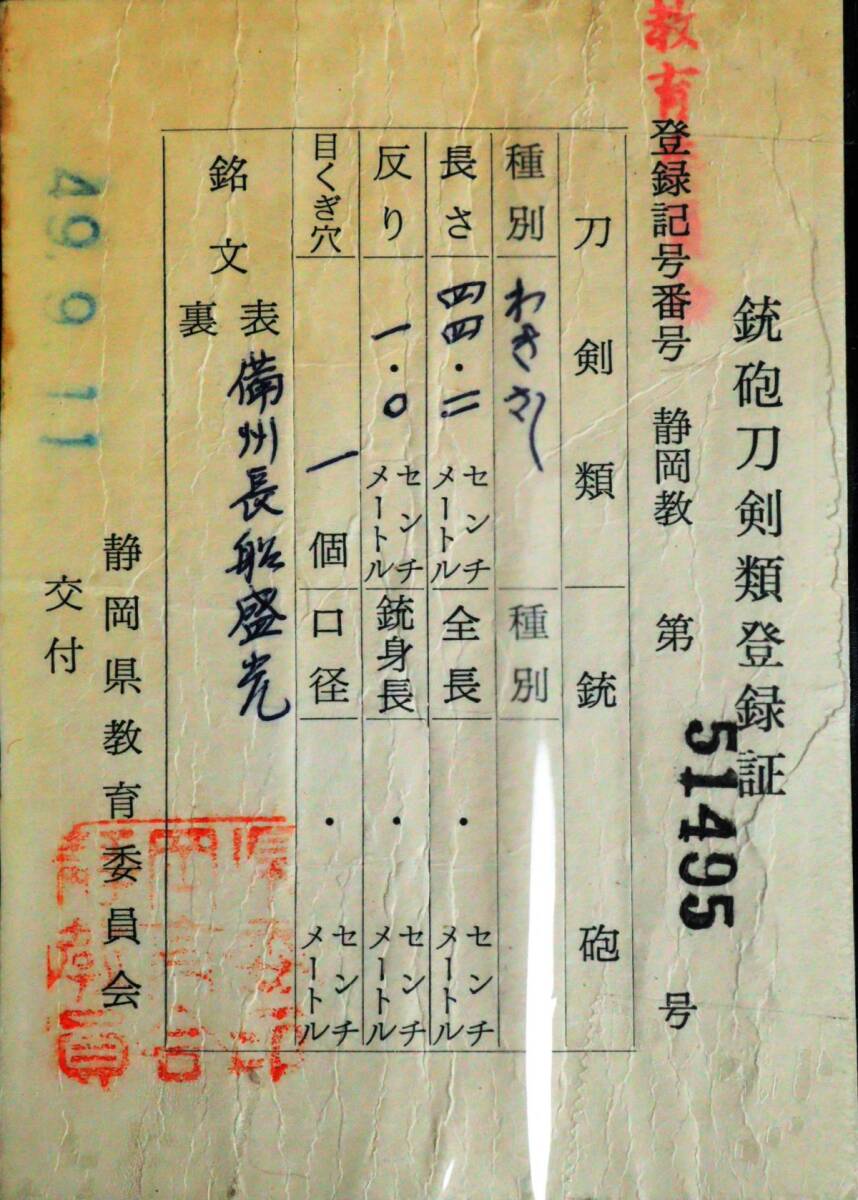 銃砲刀剣類登録証
登録記号番号 静岡教 第 51495 号
刀剣類 銃砲
種別 わきさし 種別
長さ 四四・二 センチメートル 全長 ・ センチメートル
反り 一・〇 センチメートル 銃身長 ・ センチメートル
目くぎ穴 一 個 口径 ・ センチメートル
銘文 表 備州長船盛光
裏
静岡県教育委員会
交付
49.9.11
教育